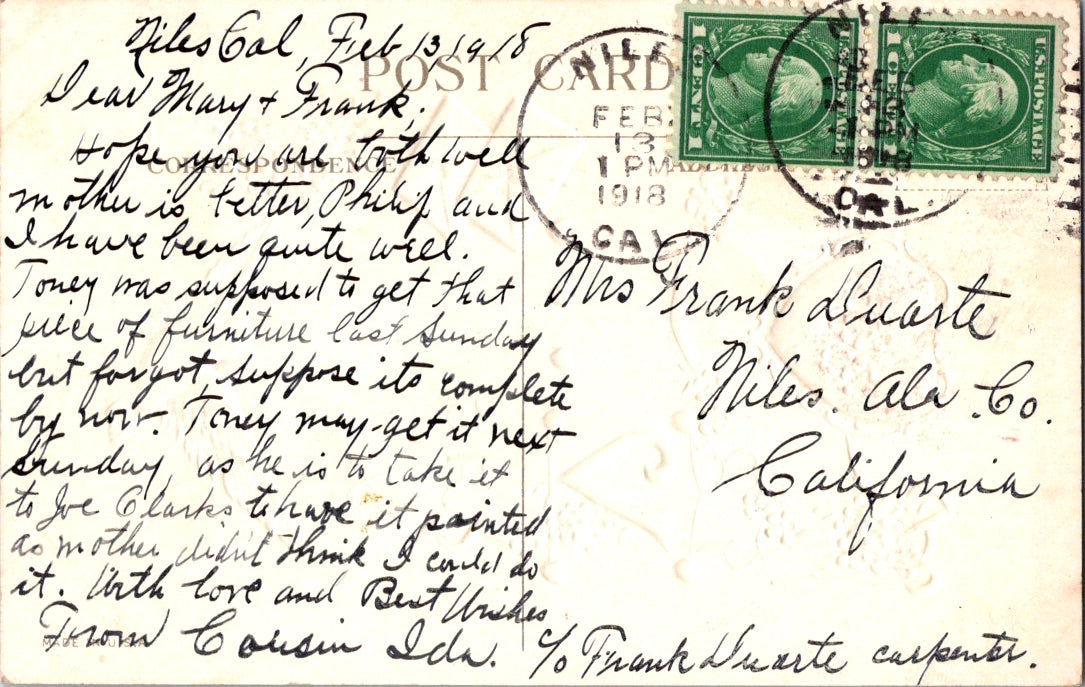 Niles Cal, Feb 13 1918
Dear Mary + Frank.
Hope you are both well
mother is better, Philip and
I have been quite well.
Toney was supposed to get that
piece of furniture last Sunday
but forgot, suppose its complete
by now. Toney may get it next
Sunday, as he is to take it
to Joe Clarks to have it painted
as mother didn't think I could do
it. With love and Best Wishes
From Cousin Ida.
POST CARD
CORRESPONDENCE
MADE IN U.S.A.
NILES
FEB
13
1 PM
1918
CAL.
U.S. POSTAGE
1 CENTS 1
NILES
FEB
13
1 PM
1918
CAL.
U.S. POSTAGE
Mrs Frank Duarte
Niles. Ala. Co.
California
c/o Frank Duarte carpenter.